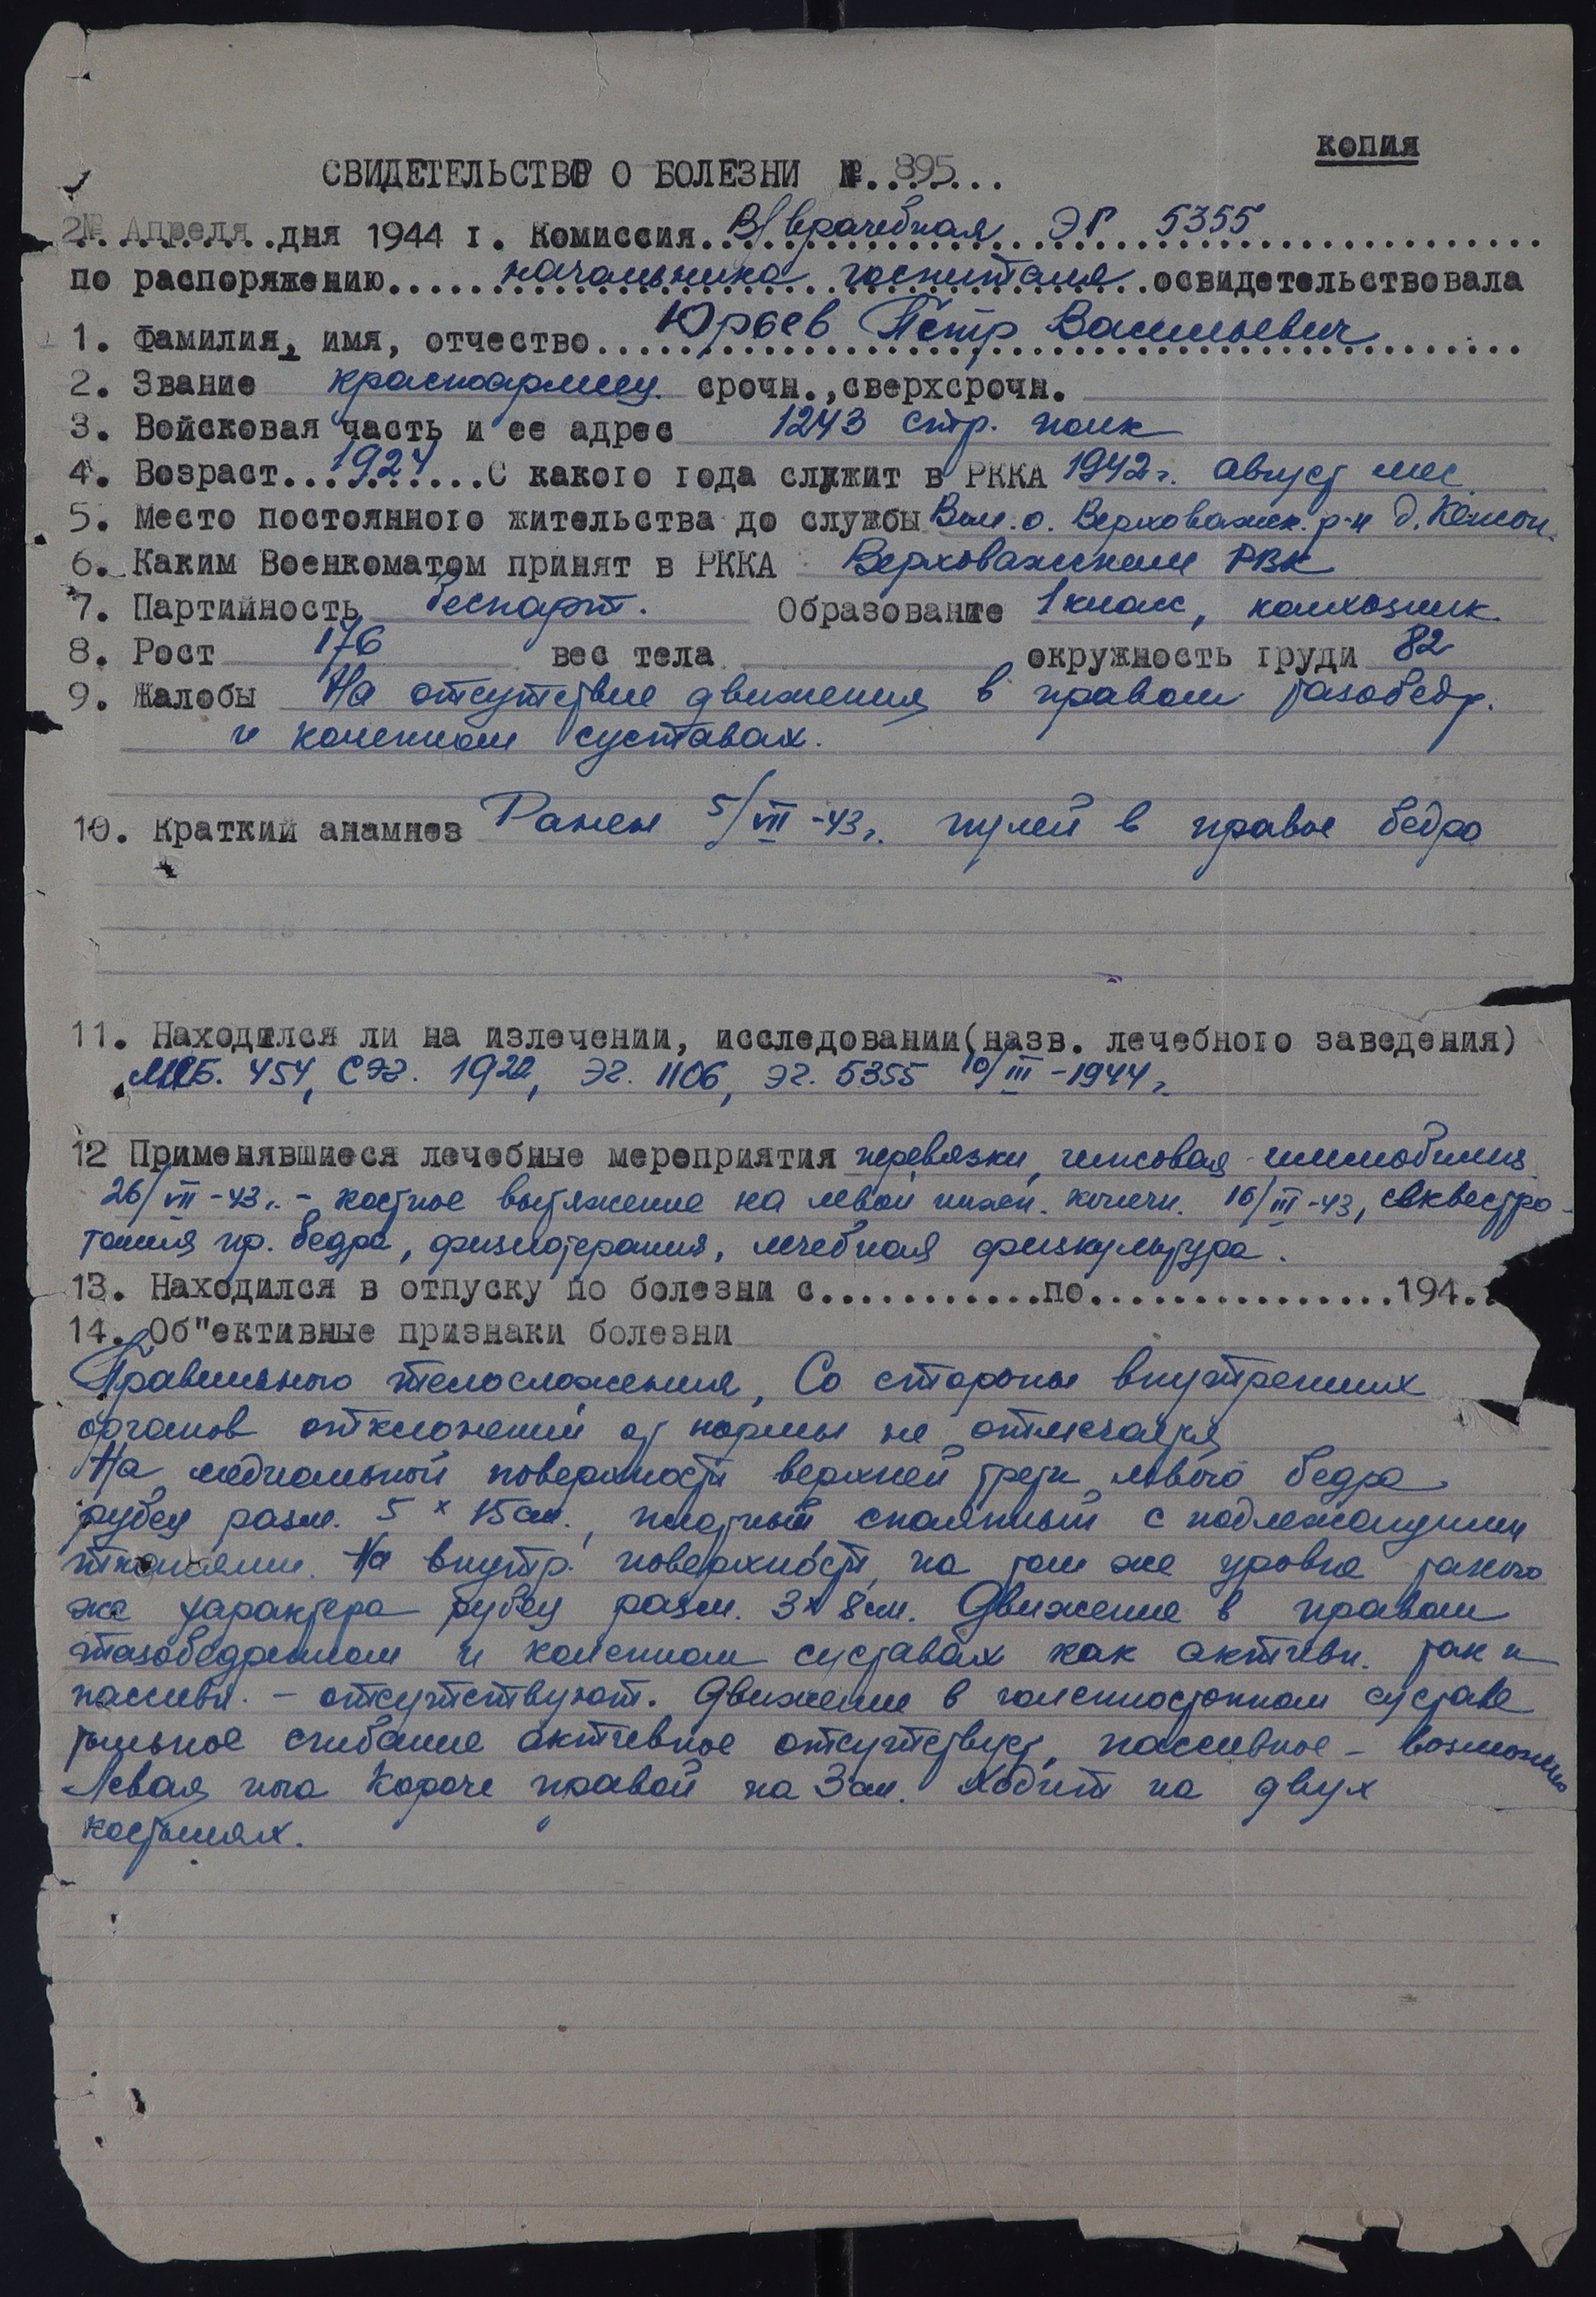 копия
СВИДЕТЕЛЬСТВО О БОЛЕЗНИ №. 895...
Апреля дня 1944 г. Комиссия В/врачебная ЭГ 5355
по распоряжению начальника госпиталя освидетельствовала
1. Фамилия, имя, отчество Юрьев Пётр Васильевич
2. Звание красноармеец срочн., сверхсрочн.
3. Войсковая часть и ее адрес 1243 стр. полк
4. Возраст 1924 С какого года служит в РККА 1942 г. август мес
5. Место постоянного жительства до службы Вол. о. Верховажск. р-н д.
6. Каким Военкоматом принят в РККА Верховажским РВК
7. Партийность беспарт. Образование 1 класс, колхозник.
8. Рост 176 вес тела окружность груди 82
9. Жалобы На отсутствие движения в правом тазобедр.
и коленном суставах.
10. Краткий анамнез Ранен 5/VII-43 г. пулей в правое бедро
11. Находился ли на излечении, исследовании (назв. лечебного заведения)
МСБ. 454, СЭГ. 1922, ЭГ. 1106, ЭГ. 5355 10/III-1944 г.
12 Применявшиеся лечебные мероприятия перевязки, гипсовая
26/VII-43 г. - костное вытяжение на левой нижн. конечн. 16/III-43, секвестро-
томия пр. бедра, физиотерапия, лечебная физкультура.
13. Находился в отпуску по болезни с............по................194..
14. Об"ективные признаки болезни
Правильного телосложения, Со стороны внутренних
органов отклонений от нормы не отмечается
На медиальной поверхности верхней трети левого бедра
рубец разм. 5 x 15 см., плотный спаянный с подлежащими
тканями. На внутр. поверхности, на том же уровне такого
же характера рубец разм. 3 x 8 см. Движение в правом
тазобедренном и коленном суставах как активн. так и
пассивн. - отсутствуют. Движение в голеностопном суставе
тыльное сгибание активное отсутствует, пассивное - возможно
Левая нога короче правой на 3 см. Ходит на двух
костылях.